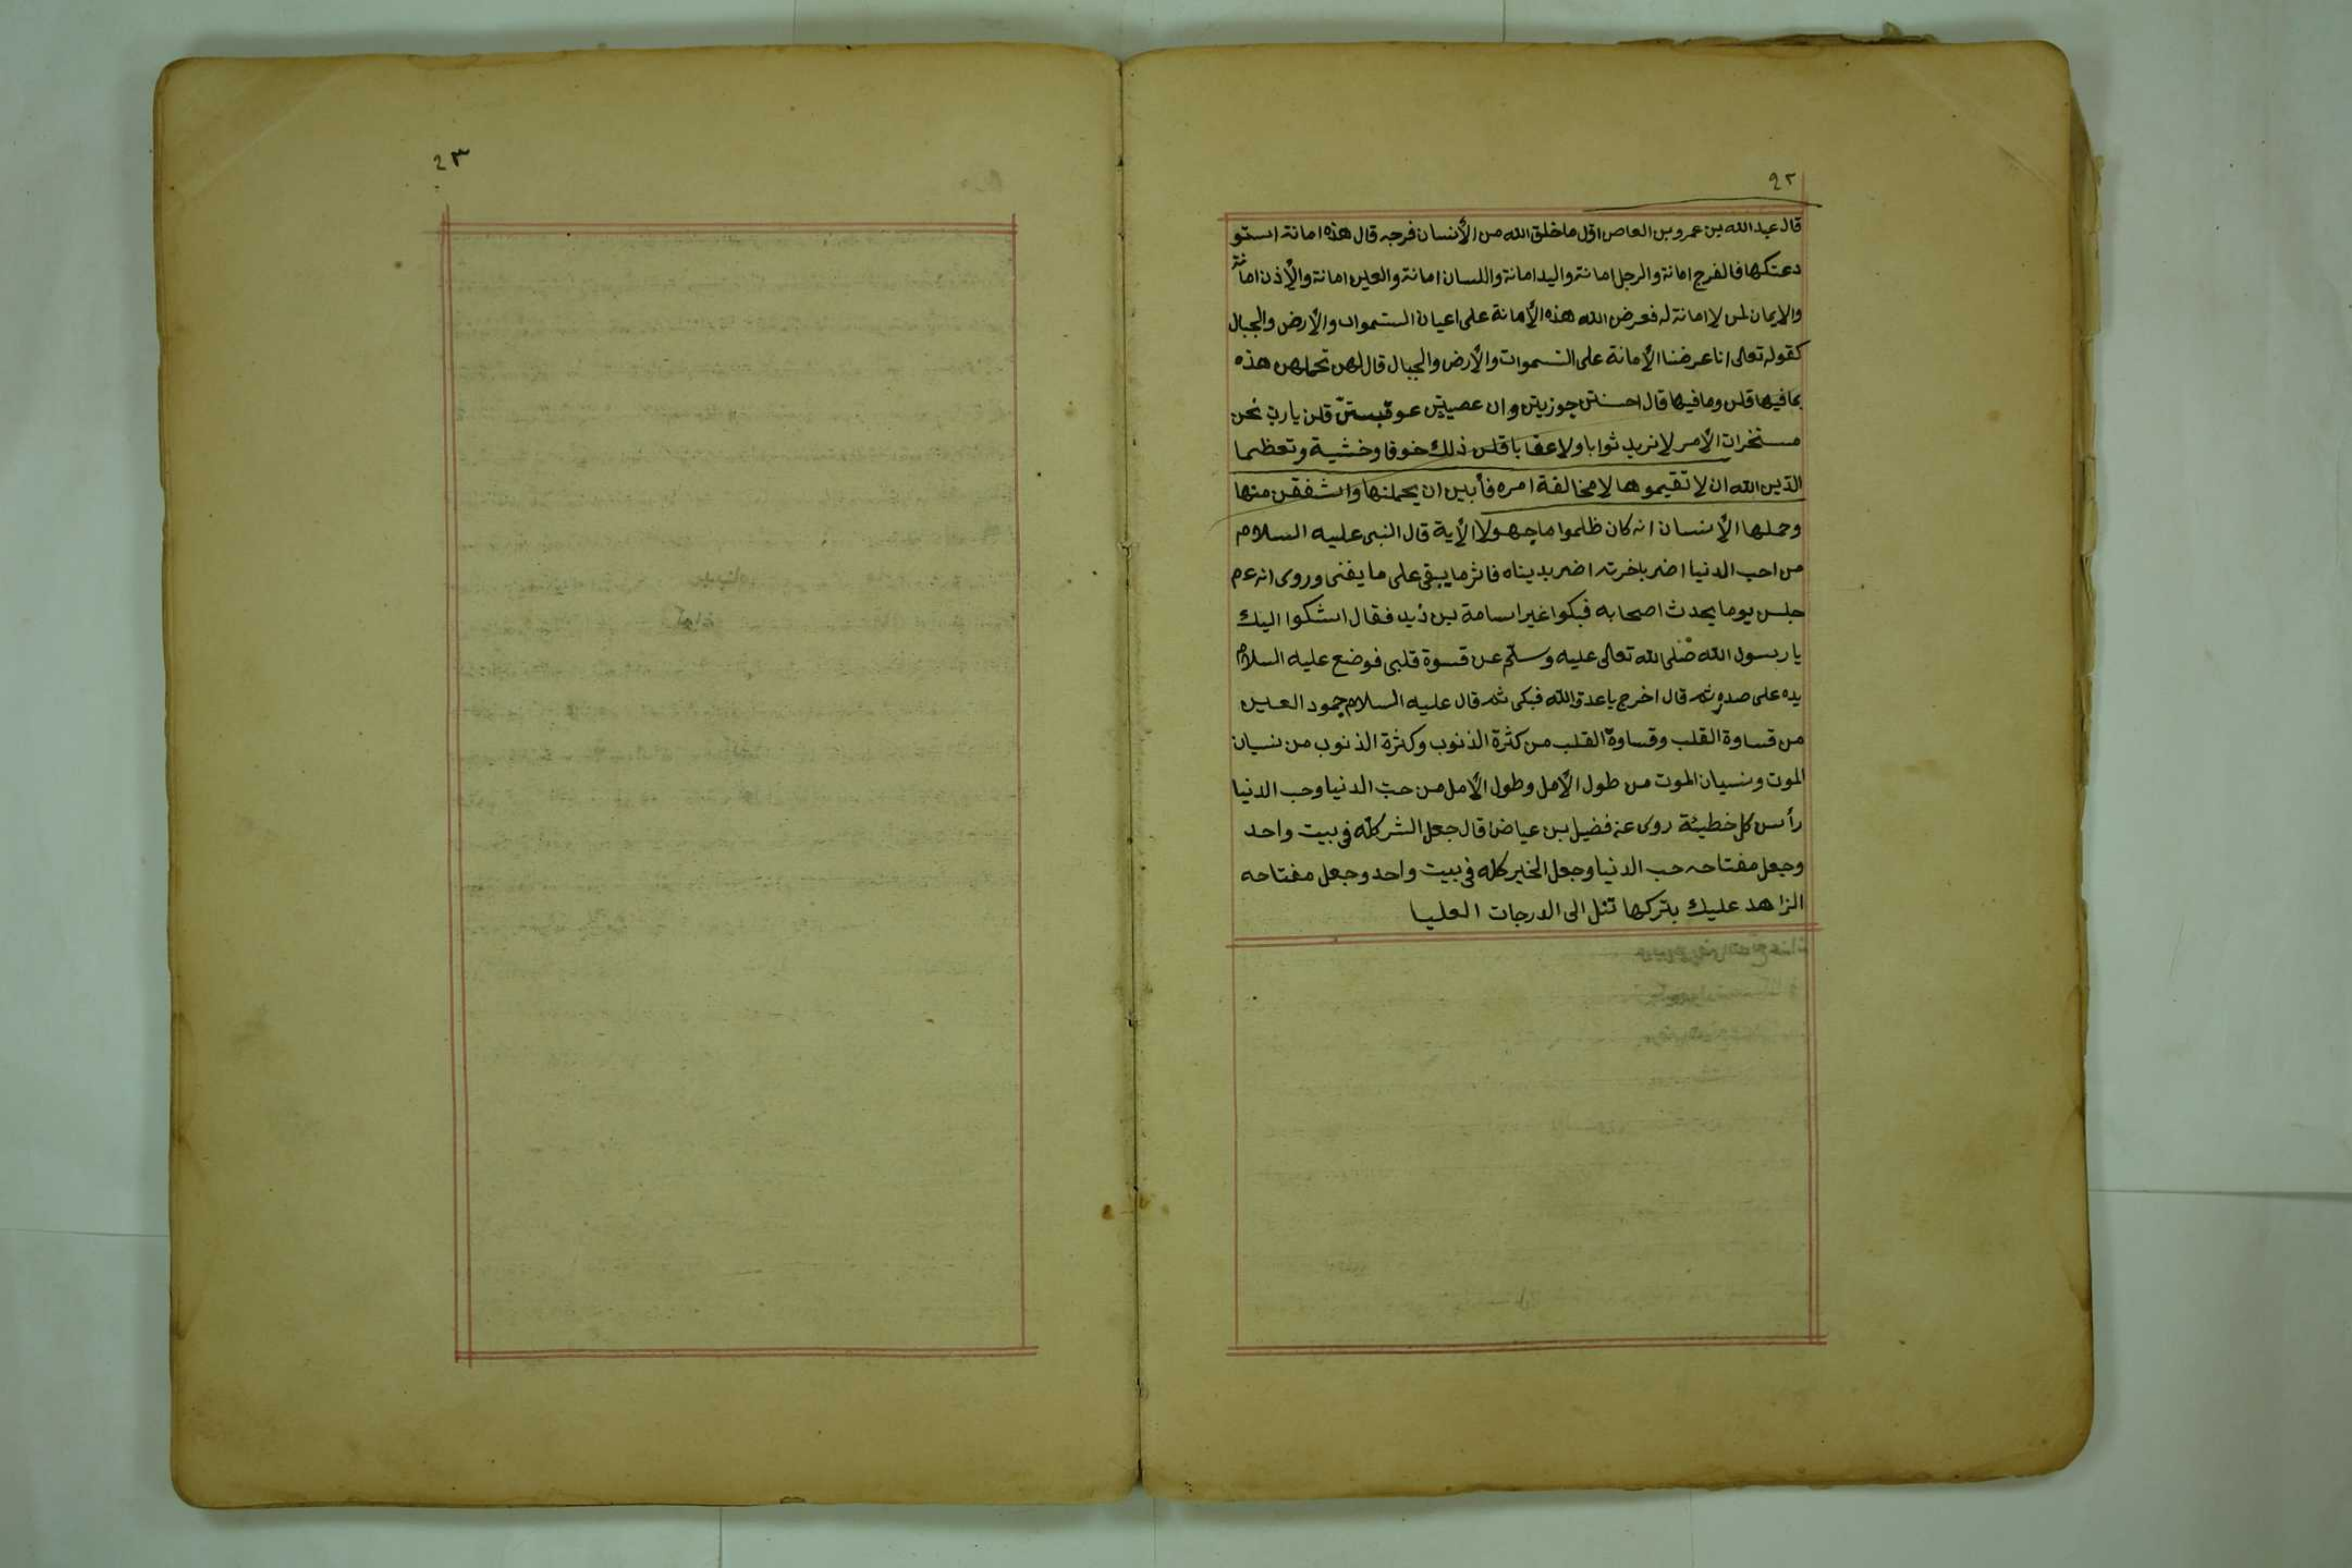 ٩٢
قال عبد الله بن عمرو بن العاص اوّل ما خلق الله من الأنسان فرجه قال هذه امانة استو
دعتكها فالفرج امانة والرجل امانة واليد امانة واللسان امانة والعين امانة والأذن امانة
والايمان لمن لا امانة له فعرض الله هذه الأمانة على اعيان السّموات والأرض والجبال
كقوله تعالى انا عرضنا الأمانة على السّموات والأرض والجبال قال لهن تحملهن هذه
بما فيها قلن وما فيها قال احسنتن جوزيتن وان عصيتن عوقبستنّ قلن يا ربّ نحن
مستخرات الأمر لا نريد ثوابا ولا عقابا قلن ذلك خوفا وخشية وتعظيما
الدّين الله ان لا تقيموها لا مخالفة امره فأبين ان يحملنها واشفقن منها
وحملها الأنسان انه كان ظلموا ما جهولا الأية قال النبى عليه السلام
من احب الدنيا اضر باخرته اضر بديناه فاثر ما يبقى على ما يفنى وروى انه عم
جلس يوما يحدث اصحابه فبكوا غير اسامة بن زيد فقال اشكوا اليك
يا رسول الله صّلى الله تعالى عليه وسلّم عن قسوة قلبى فوضع عليه السلام
يده على صدره ثم قال اخرج يا عدوّ الله فبكى ثم قال عليه السلام جمود العين
من قساوة القلب وقساوة القلب من كثرة الذنوب وكثرة الذنوب من نسيان
الموت ونسيان الموت من طول الأمل وطول الأمل من حبّ الدنيا وحب الدنيا
رأس كل خطيئة روى عن فضيل بن عياض قال جعل الشر كلّه فى بيت واحد
وجعل مفتاحه حب الدنيا وجعل الخير كله فى بيت واحد وجعل مفتاحه
الزاهد عليك بتركها تنل الى الدرجات العليا
٩٣